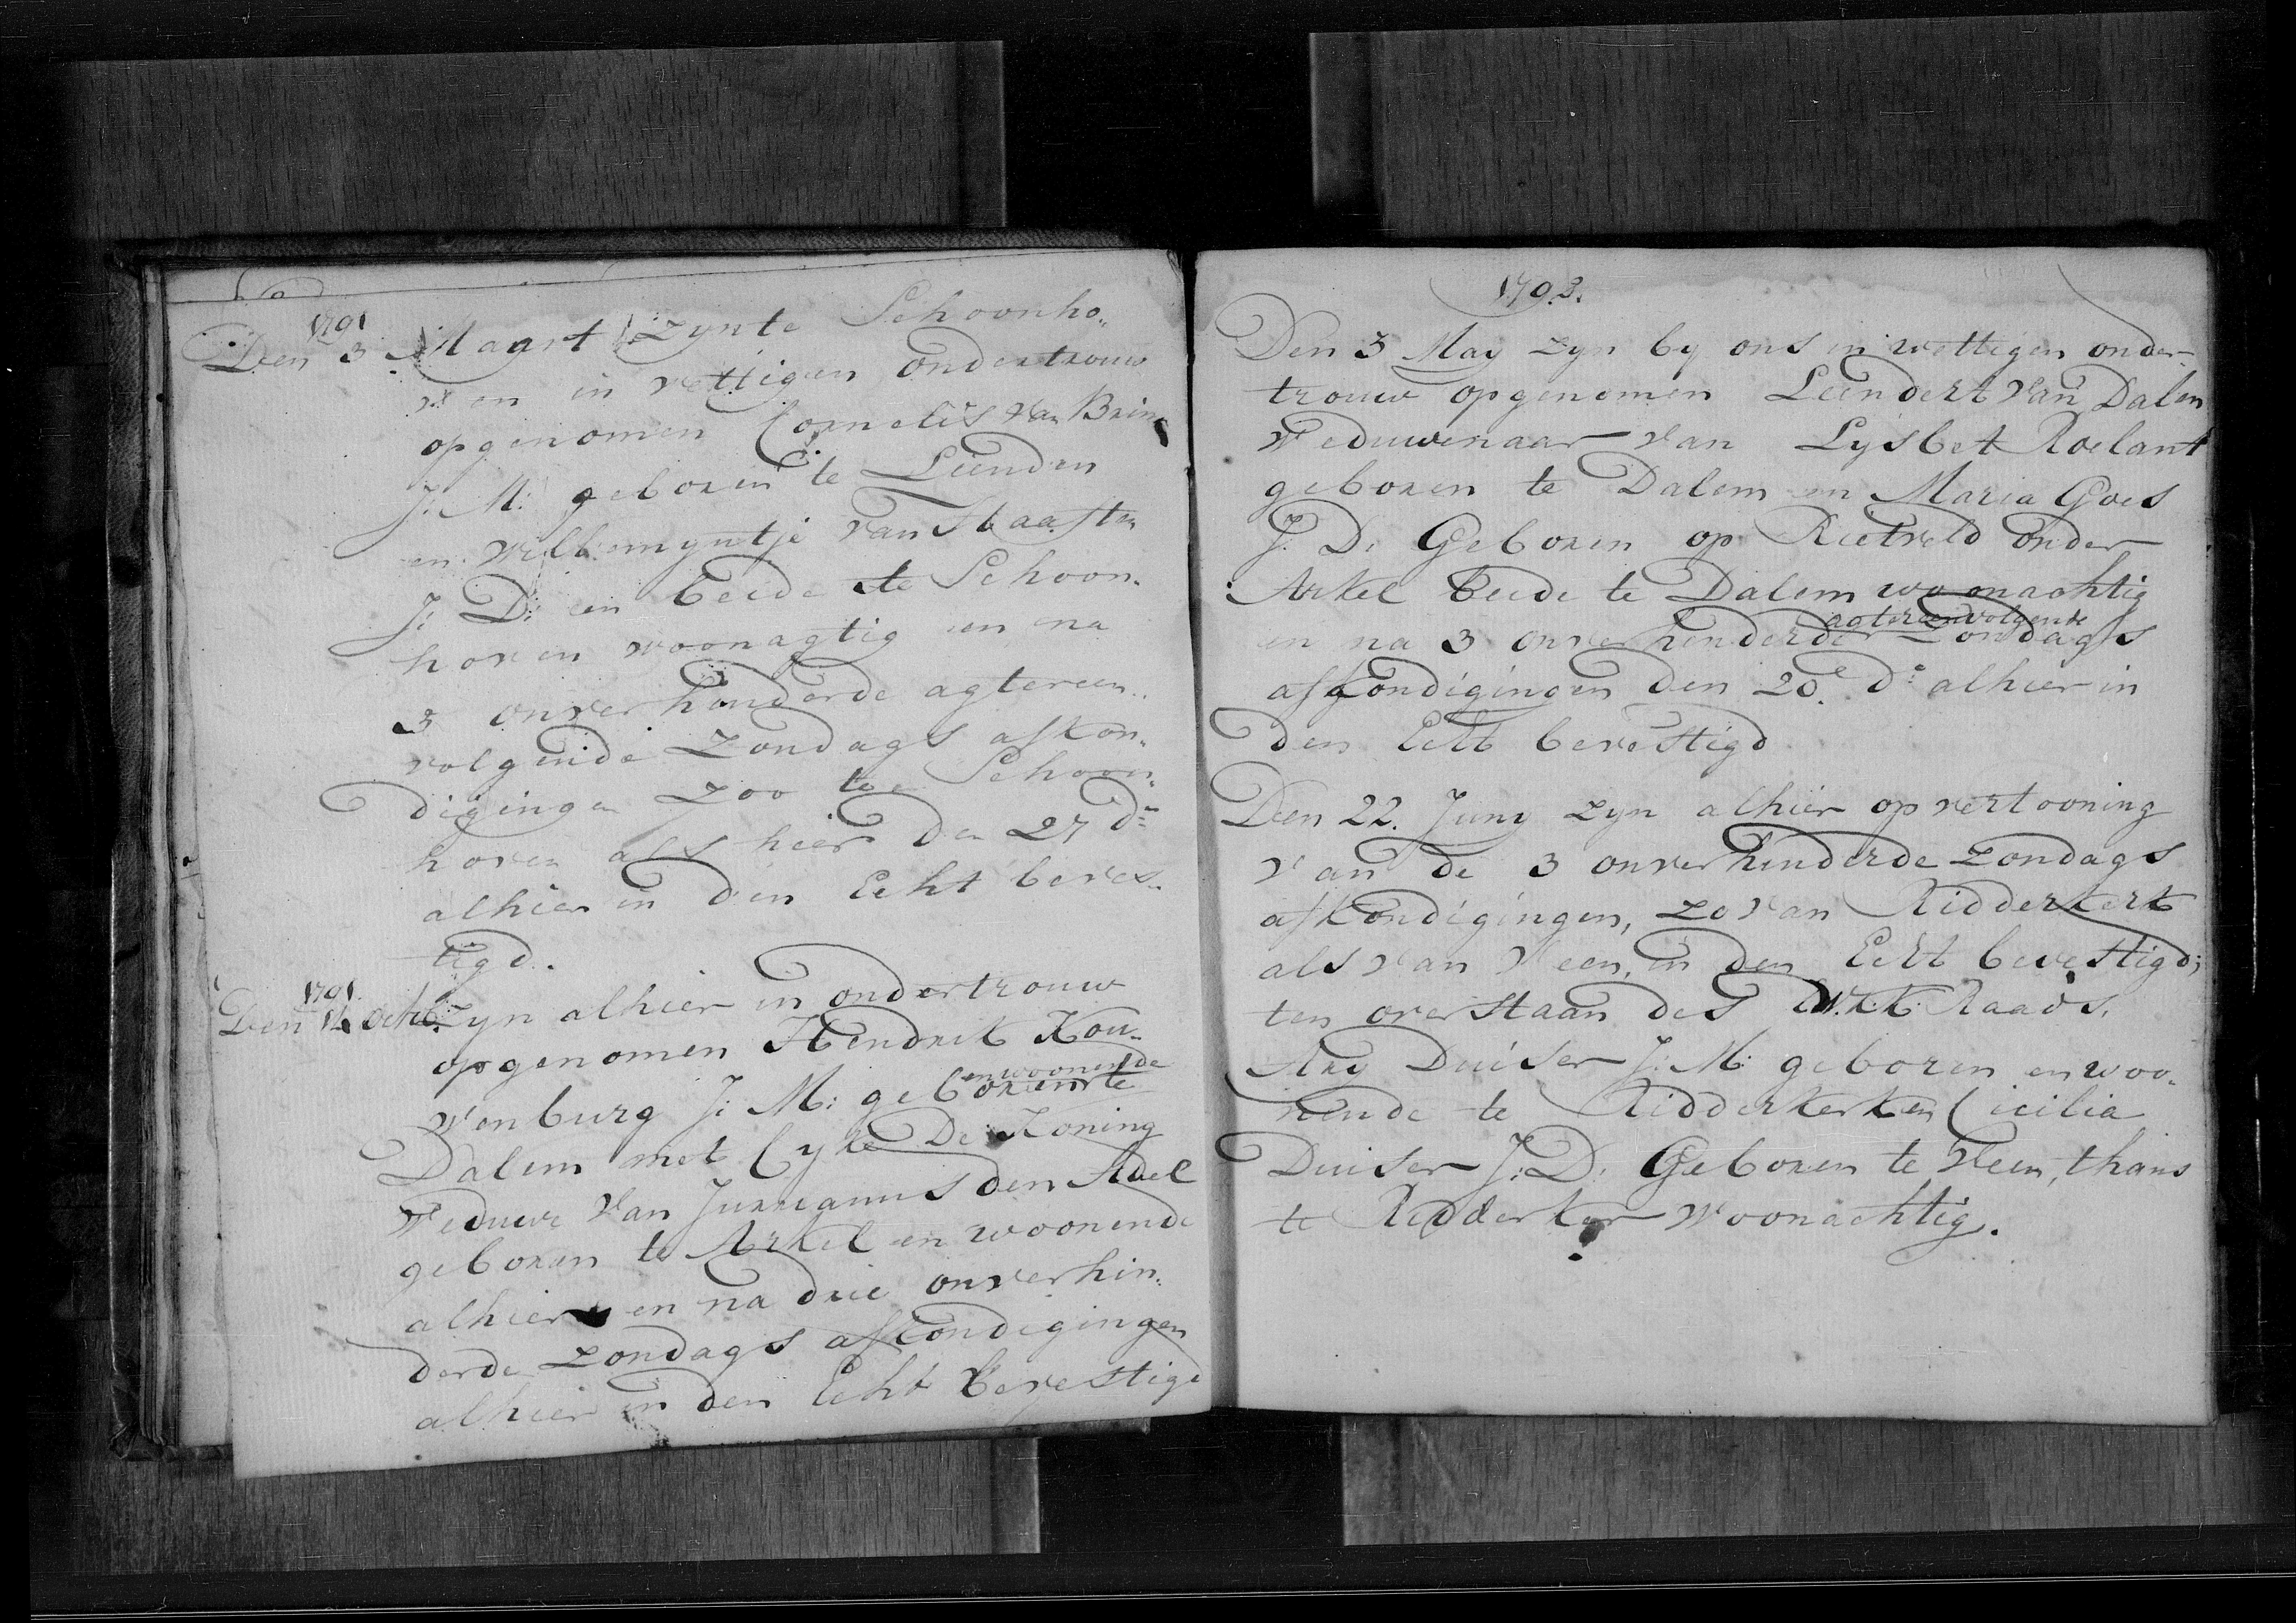 1791
Den 3 Maart zynte Schoonho„
ven in wettigen ondertrouw
opgenomen Cornelis van Brin
J: M: geboren te Lienden
en Willemyntje van Staa
J: D: en beide te Schoon„
hoven woonagtig en na
3 onverhinderde agtereen„
volgende Zondags afkon„
digingen zoo te Schoon„
hoven als hier den 27 do
alhier in den Echt beves„
tigd.
1791
Den octr zyn alhier in ondertrouw
opgenomen Hendrik Kou„
en woonende
wenburg J: M: geboren te
Dalem met Cyke De Koning
Weduwe van Jurrianus den Adel
geboren te Arkel en woonende
alhier en na drie onverhin„
derde zondags afkondigingen
alhier in den Echt bevestigd
1793.
Den 3 May zyn by ons in wettigen onder
trouw opgenomen Leendert van Dalen
Weduwenaar van Lysbet Roelant
geboren te Dalem en Maria Goes
J. D. Geboren op Rietveld onder
Arkel beide te Dalem woonachtig
agtereenvolgende
en na 3 onverhinderde Zondags
afkondigingen den 20e do alhier in
den Echt bevestigd
Den 22. Juny zyn alhier op vertooning
van de 3 onverhinderde zondags
afkondigingen, zo van Ridderkerk
als van Veen, in den Echt bevestigd;
ten overstaan des Raads,
Ary Duiser J: M: geboren en woo„
nende te Ridderkerk en Cicilia
Duiser J: D. Geboren te Veen, thans
te Ridderker woonachtig.